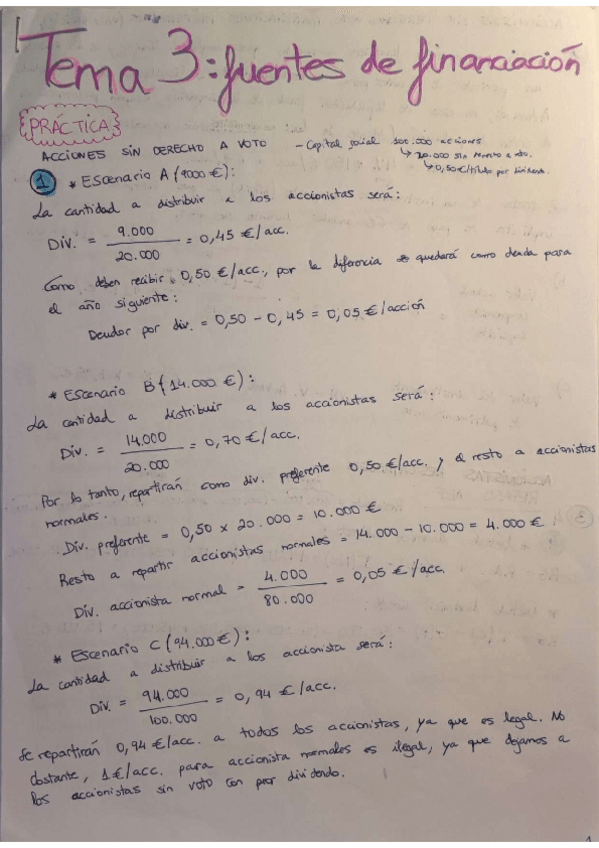 Tema 3: fuentes de financiación
PRÁCTICA
ACCIONES SIN DERECHO A VOTO - Capital social 100.000 acciones
↳ 20.000 sin derecho a voto.
↳ 0,50€/título por dividendo.
1 * Escenario A (9000 €):
La cantidad a distribuir a los accionistas será:
Div. = 9.000 / 20.000 = 0,45 €/acc.
Como deben recibir 0,50 €/acc., por la diferencia quedará como deuda para
el año siguiente:
Deudor por div. = 0,50 - 0,45 = 0,05 €/acción
* Escenario B (14.000 €):
La cantidad a distribuir a los accionistas será:
Div. = 14.000 / 20.000 = 0,70 €/acc.
Por lo tanto, repartirán como div. preferente 0,50 €/acc. y el resto a accionistas
normales.
Div. preferente = 0,50 x 20.000 = 10.000 €
Resto a repartir accionistas normales = 14.000 - 10.000 = 4.000 €
Div. accionista normal = 4.000 / 80.000 = 0,05 €/acc.
* Escenario C (94.000 €):
La cantidad a distribuir a los accionista será:
Div. = 94.000 / 100.000 = 0,94 €/acc.
Se repartirán 0,94 €/acc. a todos los accionistas, ya que es legal. No
obstante, 1 €/acc. para accionista normales es ilegal, ya que dejamos a
los accionistas sin voto con peor dividendo.